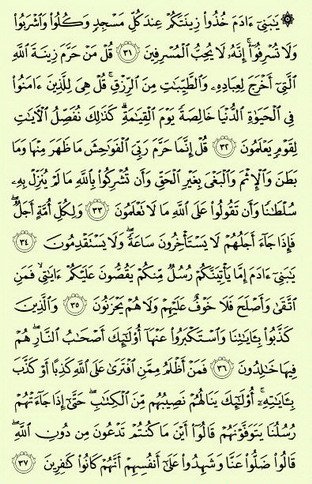 ۞ يَٰبَنِىٓ ءَادَمَ خُذُوا۟ زِينَتَكُمْ عِندَ كُلِّ مَسْجِدٍ وَكُلُوا۟ وَٱشْرَبُوا۟
وَلَا تُسْرِفُوٓا۟ إِنَّهُۥ لَا يُحِبُّ ٱلْمُسْرِفِينَ ٣١ قُلْ مَنْ حَرَّمَ زِينَةَ ٱللَّهِ
ٱلَّتِىٓ أَخْرَجَ لِعِبَادِهِۦ وَٱلطَّيِّبَٰتِ مِنَ ٱلرِّزْقِ ۚ قُلْ هِىَ لِلَّذِينَ ءَامَنُوا۟
فِى ٱلْحَيَوٰةِ ٱلدُّنْيَا خَالِصَةً يَوْمَ ٱلْقِيَٰمَةِ ۗ كَذَٰلِكَ نُفَصِّلُ ٱلْءَايَٰتِ
لِقَوْمٍ يَعْلَمُونَ ٣٢ قُلْ إِنَّمَا حَرَّمَ رَبِّىَ ٱلْفَوَٰحِشَ مَا ظَهَرَ مِنْهَا وَمَا
بَطَنَ وَٱلْإِثْمَ وَٱلْبَغْىَ بِغَيْرِ ٱلْحَقِّ وَأَن تُشْرِكُوا۟ بِٱللَّهِ مَا لَمْ يُنَزِّلْ بِهِۦ
سُلْطَٰنًا وَأَن تَقُولُوا۟ عَلَى ٱللَّهِ مَا لَا تَعْلَمُونَ ٣٣ وَلِكُلِّ أُمَّةٍ أَجَلٌ ۖ
فَإِذَا جَآءَ أَجَلُهُمْ لَا يَسْتَأْخِرُونَ سَاعَةً ۖ وَلَا يَسْتَقْدِمُونَ ٣٤
يَٰبَنِىٓ ءَادَمَ إِمَّا يَأْتِيَنَّكُمْ رُسُلٌ مِّنكُمْ يَقُصُّونَ عَلَيْكُمْ ءَايَٰتِى ۙ فَمَنِ
ٱتَّقَىٰ وَأَصْلَحَ فَلَا خَوْفٌ عَلَيْهِمْ وَلَا هُمْ يَحْزَنُونَ ٣٥ وَٱلَّذِينَ
كَذَّبُوا۟ بِـَٔايَٰتِنَا وَٱسْتَكْبَرُوا۟ عَنْهَآ أُو۟لَٰٓئِكَ أَصْحَٰبُ ٱلنَّارِ ۖ هُمْ
فِيهَا خَٰلِدُونَ ٣٦ فَمَنْ أَظْلَمُ مِمَّنِ ٱفْتَرَىٰ عَلَى ٱللَّهِ كَذِبًا أَوْ كَذَّبَ
بِـَٔايَٰتِهِۦٓ ۚ أُو۟لَٰٓئِكَ يَنَالُهُمْ نَصِيبُهُم مِّنَ ٱلْكِتَٰبِ ۖ حَتَّىٰٓ إِذَا جَآءَتْهُمْ
رُسُلُنَا يَتَوَفَّوْنَهُمْ قَالُوٓا۟ أَيْنَ مَا كُنتُمْ تَدْعُونَ مِن دُونِ ٱللَّهِ ۖ
قَالُوا۟ ضَلُّوا۟ عَنَّا وَشَهِدُوا۟ عَلَىٰٓ أَنفُسِهِمْ أَنَّهُمْ كَانُوا۟ كَٰفِرِينَ ٣٧